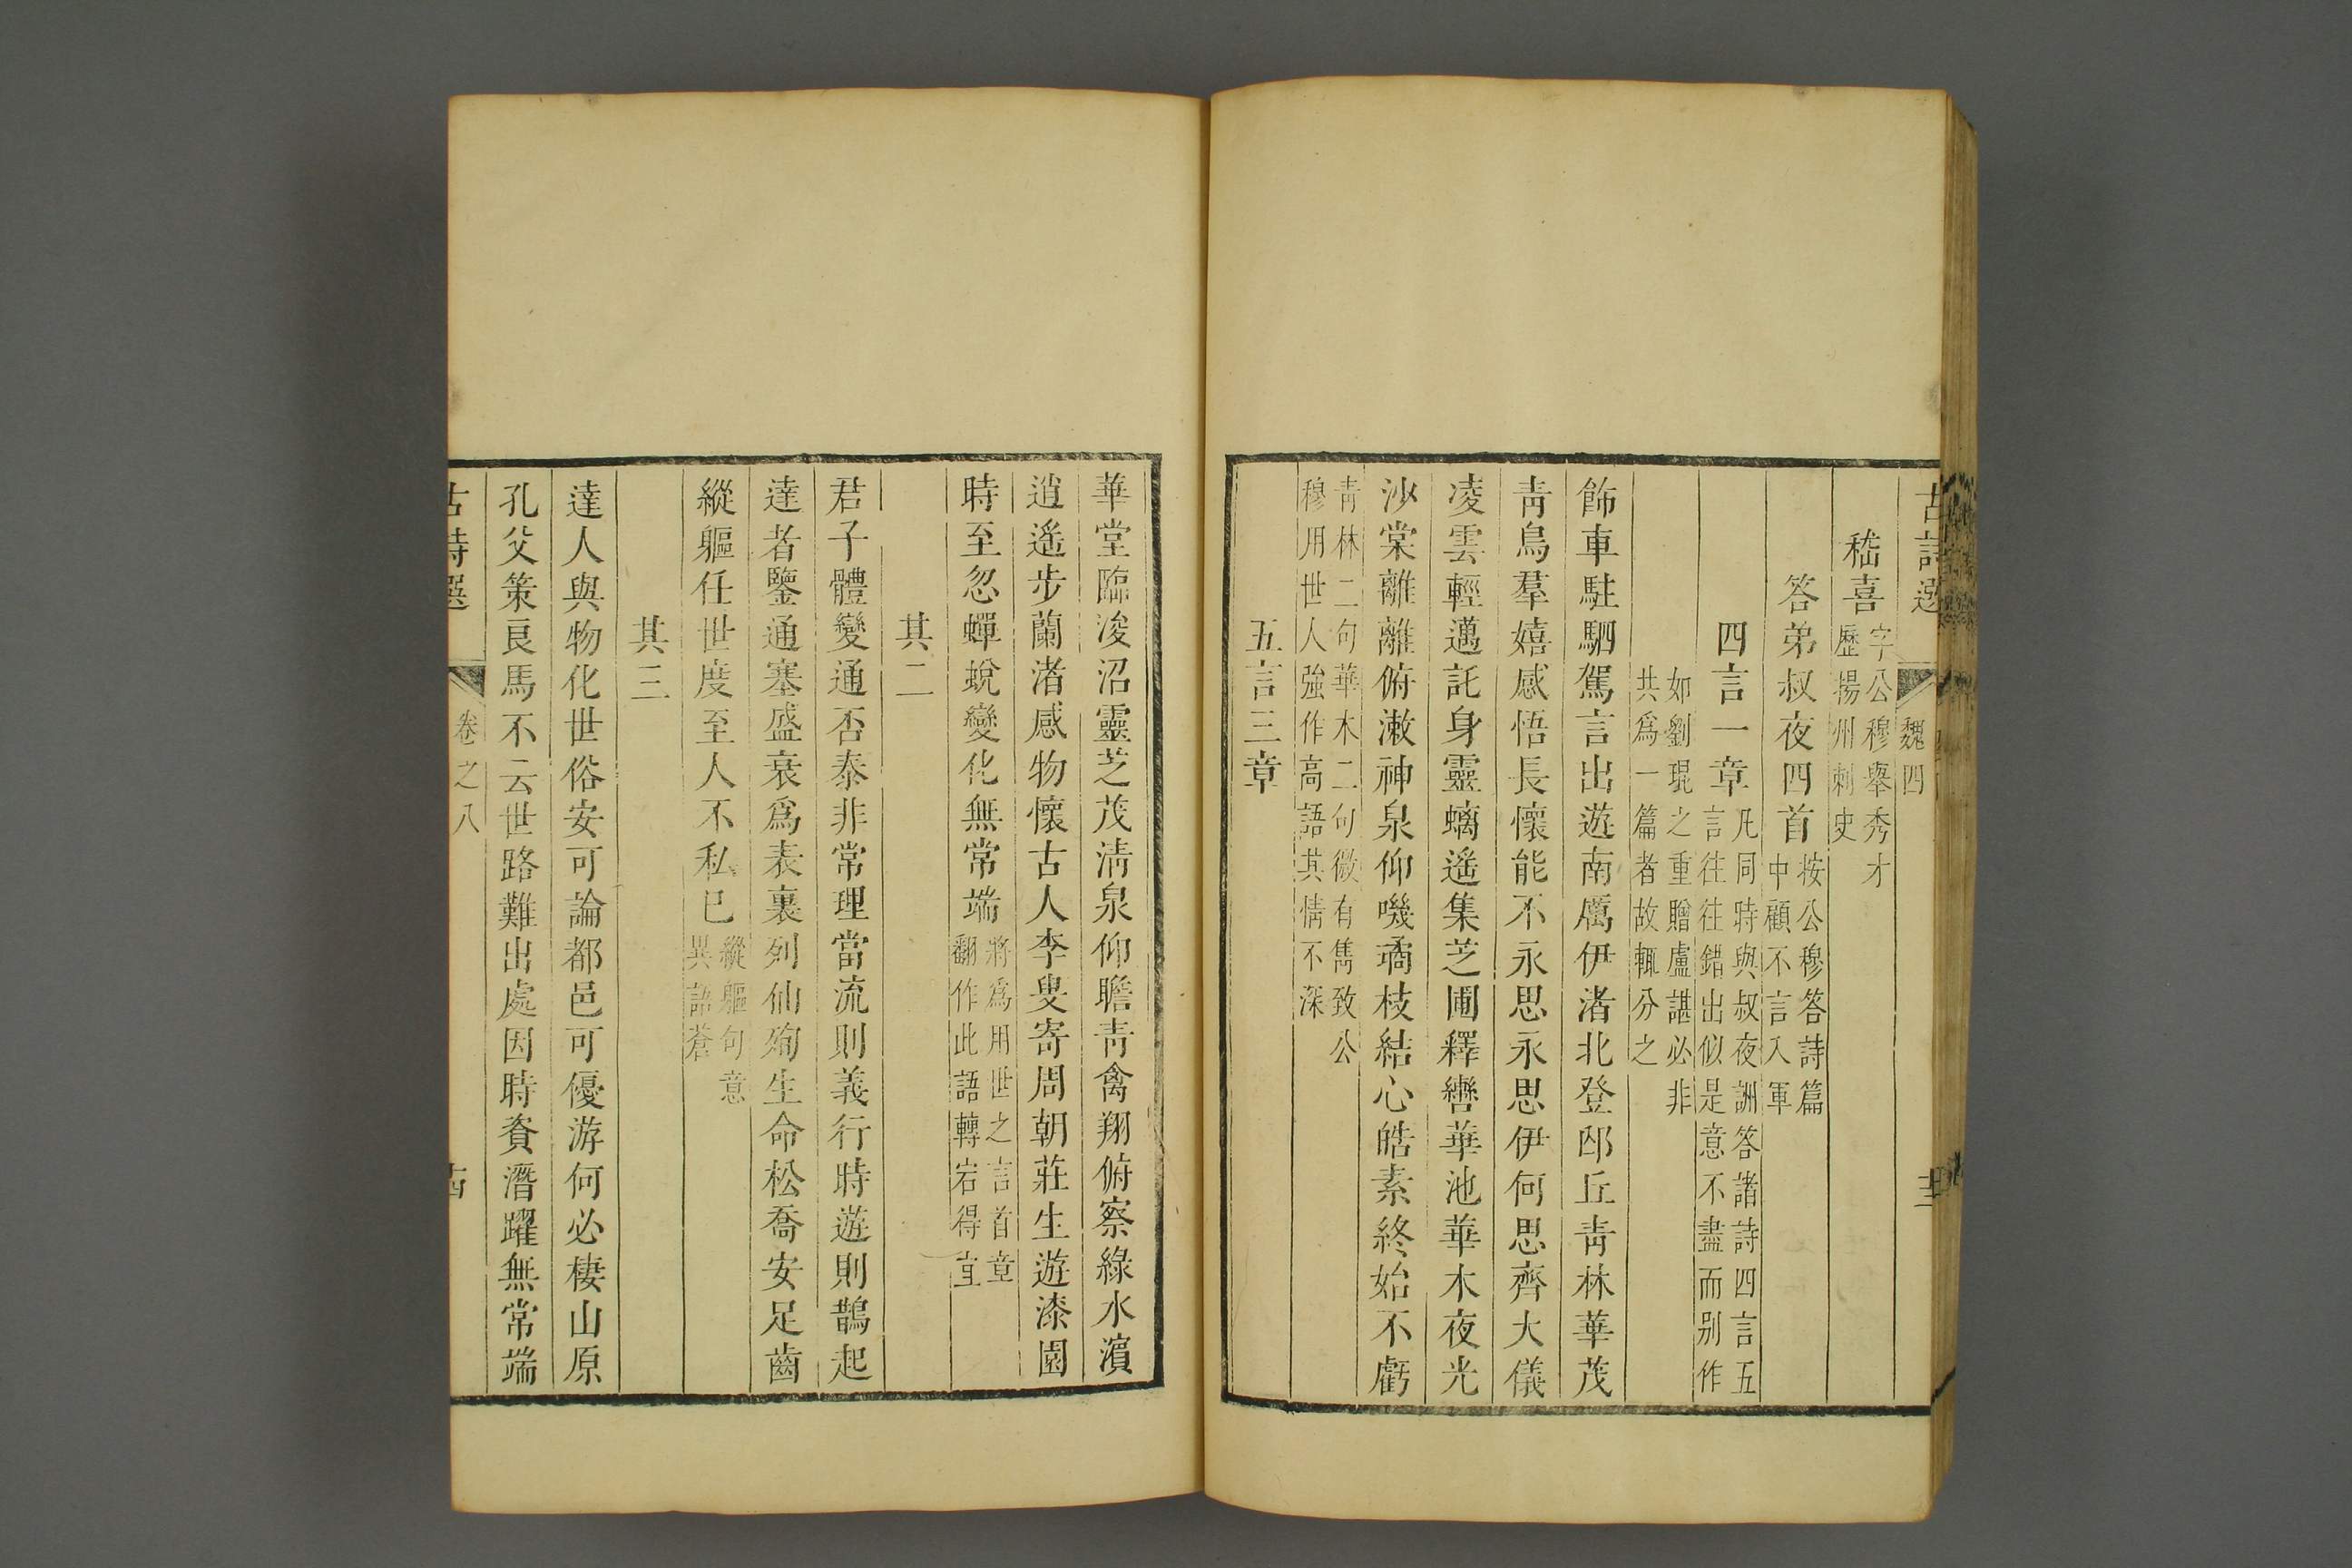 古詩選 魏四
嵇喜 字公穆舉秀才
歷揚州刺史
答弟叔夜四首 按公穆答詩篇
中顧不言入軍
四言一章 凡同時與叔夜詶答諸詩四言五
言往往錯出似是意不盡而別作
如劉琨之重贈盧諶必非
共爲一篇者故輒分之
飾車駐駟駕言出遊南厲伊渚北登邙丘青林華茂
青鳥羣嬉感悟長懷能不永思永思伊何思齊大儀
凌雲輕邁託身靈螭遙集芝圃釋轡華池華木夜光
沙棠離離俯漱神泉仰嘰璚枝結心皓素終始不虧
青林二句華木二句微有雋致公
穆用世人強作高語其情不深
五言三章
華堂臨浚沼靈芝茂清泉仰瞻青禽翔俯察綠水濱
逍遙步蘭渚感物懷古人李叟寄周朝莊生遊漆園
時至忽蟬蛻變化無常端 將爲用世之言首章
翻作此語轉宕得宜
其二
君子體變通否泰非常理當流則義行時遊則鵲起
達者鑒通塞盛衰爲表裏列仙殉生命松喬安足齒
縱軀任世度至人不私已 縱軀句意
異語蒼
其三
達人與物化世俗安可論都邑可優游何必棲山原
孔父策良馬不云世路難出處因時資潛躍無常端
古詩選 卷之八